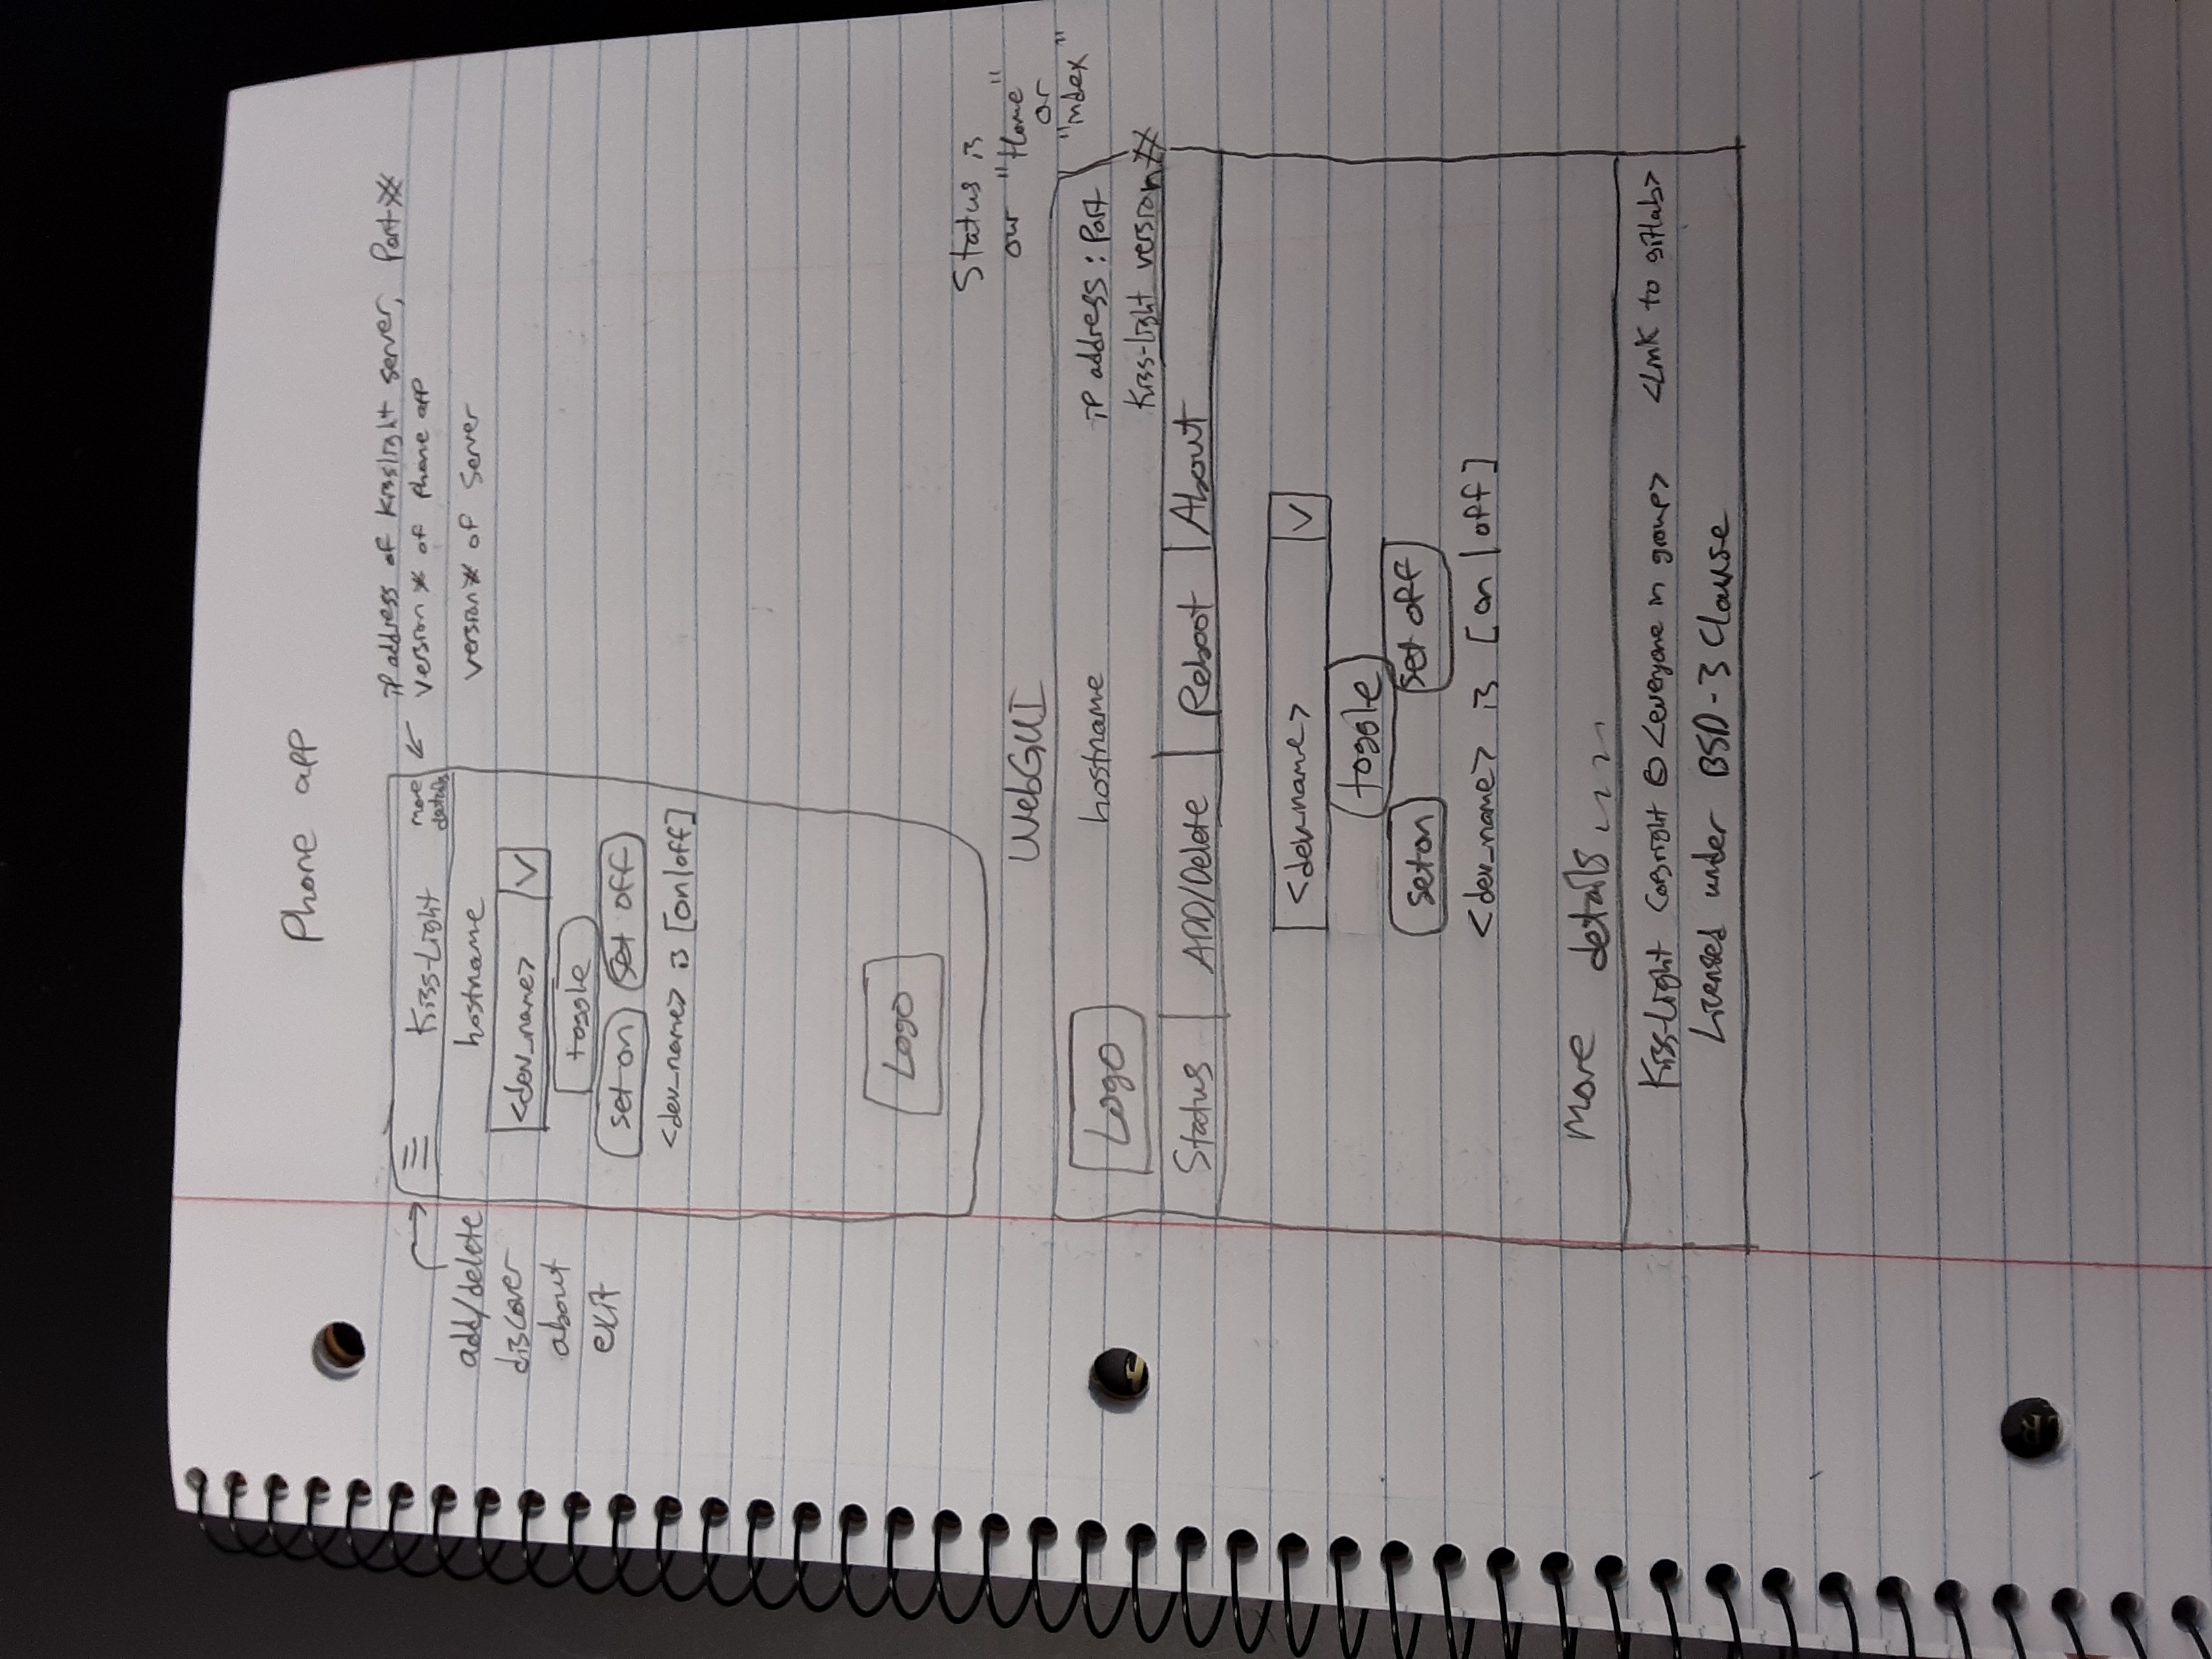 Phone app
ip address of Kisslight server, Port #
Kiss-Light
more
details
version # of phone app
add/delete
hostname
version # of Server
discover
<dev_name> V
about
toggle
exit
set on set off
<dev_name> is [on/off]
Logo
Status is
our "Home"
or
"index"
WebGUI
Logo
hostname
ip address : Port
Kiss-light version #
Status ADD/Delete Reboot About
<dev_name> V
toggle
set on set off
<dev_name> is [on | off]
More details....
Kiss-Light Copyright © <everyone in group> <Link to gitlab>
Licensed under BSD-3 Clause